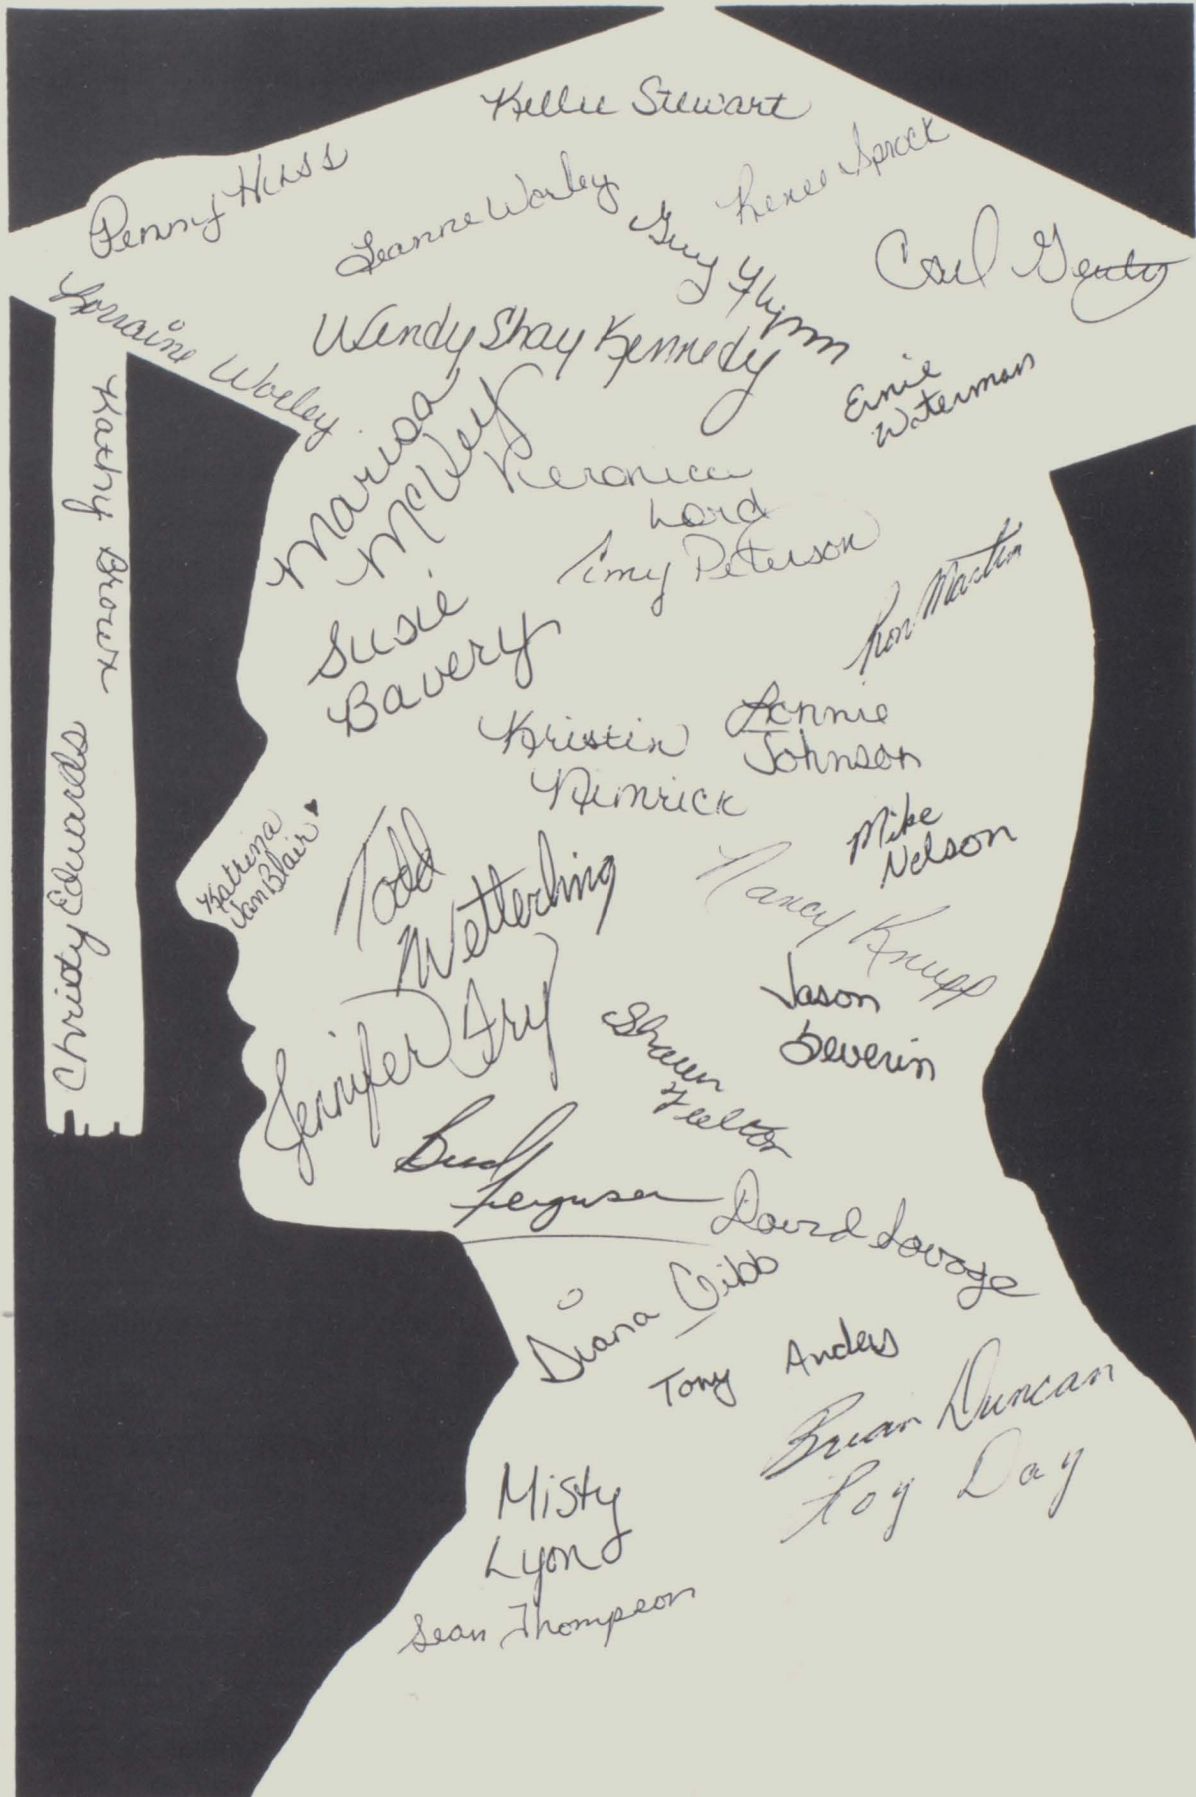 Kellie Stewart
Penny Huss
Leanne Worley
Renee Sprock
Guy Flynn
Carl Gentry
Lorraine Worley
Wendy Shay Kennedy
Ernie
Waterman
Kathy Brown
Marisa
McVey
Veronica
Lord
Timy Peterson
Ron Martin
Susie
Bavery
Kristin
Nimrick
Lonnie
Johnson
Christy Edwards
Katrina
VanBlair
Todd
Wetterling
Mike
Nelson
Nancy Knupp
Jason
Severin
Jennifer Fry
Shawn
Fulton
Bud
Ferguson
David Savage
Diana Gibb
Tony Anders
Brian Duncan
Roy Day
Misty
Lyon
Sean Thompson